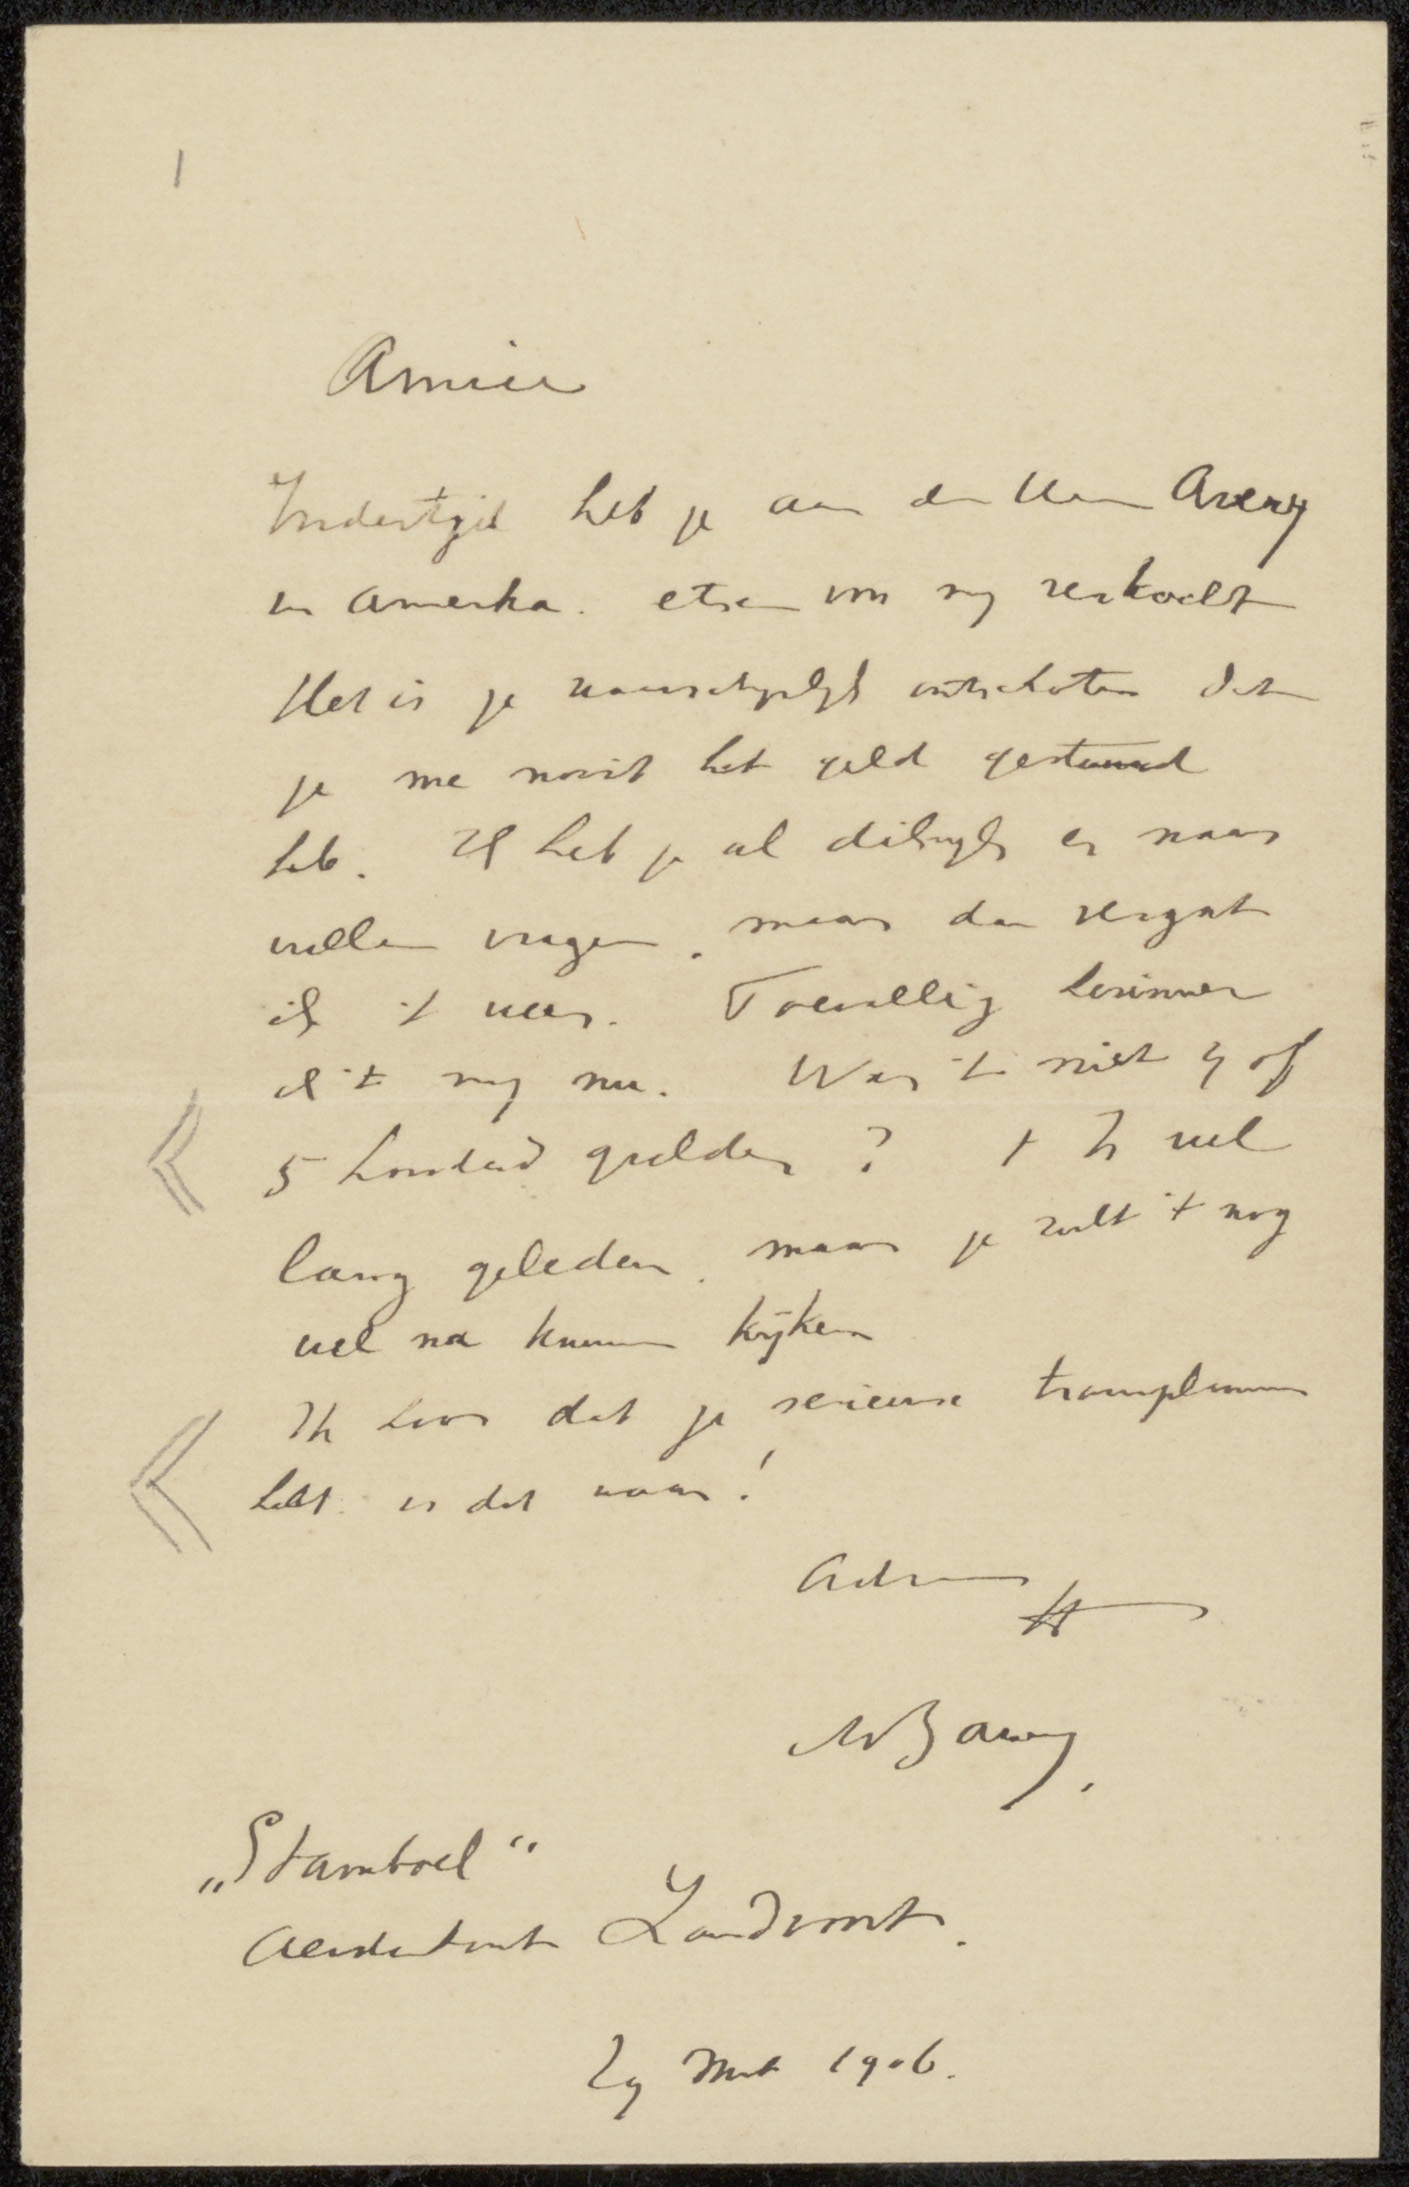 1
Amice
Indertijd heb je aan den Heer Avery
in Amerika. etsen van mij verkocht
Het is je waarschijnlijk ontschoten dat
je me nooit het geld gestuurd
heb. Ik heb je al dikwijls er naar
willen vragen. maar dan vergat
ik 't weer. Toevallig herinner
ik 't mij nu. Was 't niet 4 of
5 honderd gulden? 't Is wel
lang geleden. maar je zult 't nog
wel na kunnen kijken
Ik hoor dat je serieuse trouwplannen
hebt. is dat waar!
MBauer.
„Stamboel"
Aerdenhout Zandvoort.
29 Mrt 1906.